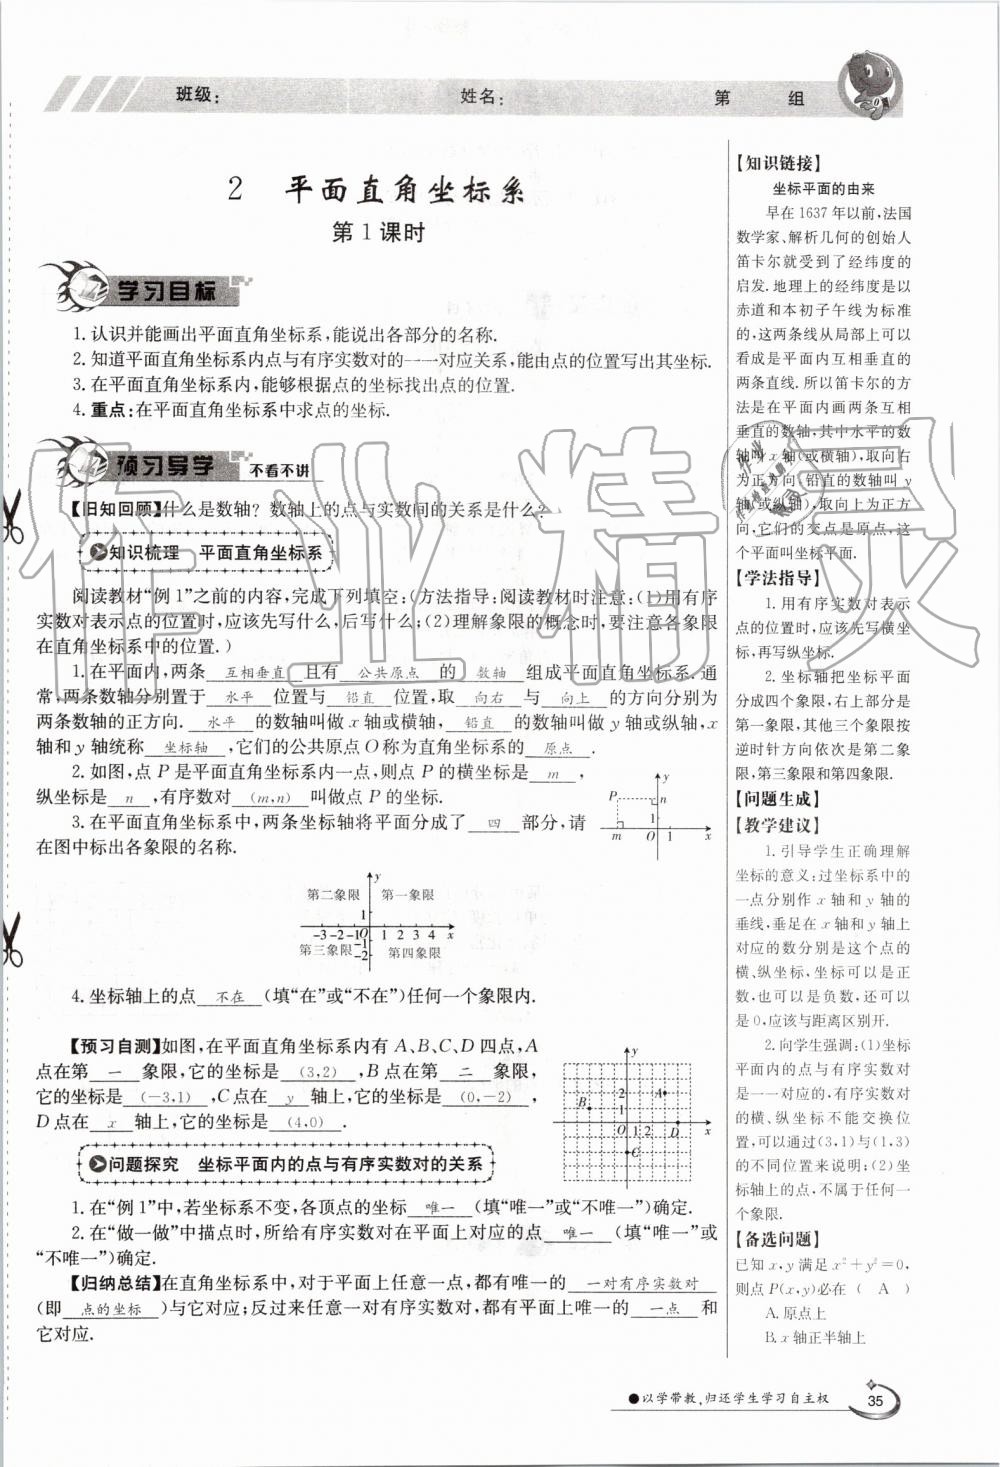 班级: 姓名: 第 组
2 平面直角坐标系
第1课时
学习目标
1.认识并能画出平面直角坐标系,能说出各部分的名称.
2.知道平面直角坐标系内点与有序实数对的一一对应关系,能由点的位置写出其坐标.
3.在平面直角坐标系内,能够根据点的坐标找出点的位置.
4.重点:在平面直角坐标系中求点的坐标.
预习导学 不看不讲
【旧知回顾】什么是数轴? 数轴上的点与实数间的关系是什么?
知识梳理 平面直角坐标系
阅读教材“例1”之前的内容,完成下列填空:(方法指导:阅读教材时注意:(1)用有序
实数对表示点的位置时,应该先写什么,后写什么;(2)理解象限的概念时,要注意各象限
在直角坐标系中的位置.)
1.在平面内,两条 互相垂直 且有 公共原点 的 数轴 组成平面直角坐标系.通
常,两条数轴分别置于 水平 位置与 铅直 位置,取 向右 与 向上 的方向分别为
两条数轴的正方向. 水平 的数轴叫做x轴或横轴, 铅直 的数轴叫做y轴或纵轴,x
轴和y轴统称 坐标轴 ,它们的公共原点O称为直角坐标系的 原点 .
2.如图,点P是平面直角坐标系内一点,则点P的横坐标是 m ,
纵坐标是 n ,有序数对 (m,n) 叫做点P的坐标.
3.在平面直角坐标系中,两条坐标轴将平面分成了 四 部分,请
在图中标出各象限的名称.
y
P n
1
m O 1 x
y
第二象限 第一象限
1
-3 -2 -1 O 1 2 3 4 x
-1
第三象限 -2 第四象限
4.坐标轴上的点 不在 (填“在”或“不在”)任何一个象限内.
【预习自测】如图,在平面直角坐标系内有A、B、C、D四点,A
点在第 一 象限,它的坐标是 (3,2) ,B点在第 二 象限,
它的坐标是 (-3,1) ,C点在 y 轴上,它的坐标是 (0,-2) ,
D点在 x 轴上,它的坐标是 (4,0) .
y
2 A
B 1
O 1 2 D x
C
问题探究 坐标平面内的点与有序实数对的关系
1.在“例1”中,若坐标系不变,各顶点的坐标 唯一 (填“唯一”或“不唯一”)确定.
2.在“做一做”中描点时,所给有序实数对在平面上对应的点 唯一 (填“唯一”或
“不唯一”)确定.
【归纳总结】在直角坐标系中,对于平面上任意一点,都有唯一的 一对有序实数对
(即 点的坐标 )与它对应;反过来任意一对有序实数对,都有平面上唯一的 一点 和
它对应.
【知识链接】
坐标平面的由来
早在1637年以前,法国
数学家、解析几何的创始人
笛卡尔就受到了经纬度的
启发.地理上的经纬度是以
赤道和本初子午线为标准
的,这两条线从局部上可以
看成是平面内互相垂直的
两条直线.所以笛卡尔的方
法是在平面内画两条互相
垂直的数轴,其中水平的数
轴叫x轴(或横轴),取向右
为正方向,铅直的数轴叫y
轴(或纵轴),取向上为正方
向,它们的交点是原点,这
个平面叫坐标平面.
【学法指导】
1.用有序实数对表示
点的位置时,应该先写横坐
标,再写纵坐标.
2.坐标轴把坐标平面
分成四个象限,右上部分是
第一象限,其他三个象限按
逆时针方向依次是第二象
限,第三象限和第四象限.
【问题生成】
【教学建议】
1.引导学生正确理解
坐标的意义:过坐标系中的
一点分别作x轴和y轴的
垂线,垂足在x轴和y轴上
对应的数分别是这个点的
横、纵坐标,坐标可以是正
数,也可以是负数,还可以
是0,应该与距离区别开.
2.向学生强调:(1)坐标
平面内的点与有序实数对
是一一对应的,有序实数对
的横、纵坐标不能交换位
置,可以通过(3,1)与(1,3)
的不同位置来说明;(2)坐
标轴上的点,不属于任何一
个象限.
【备选问题】
已知x,y满足x²+y²=0,
则点P(x,y)必在 ( A )
A.原点上
B.x轴正半轴上
●以学带教,归还学生学习自主权 35
作业精灵